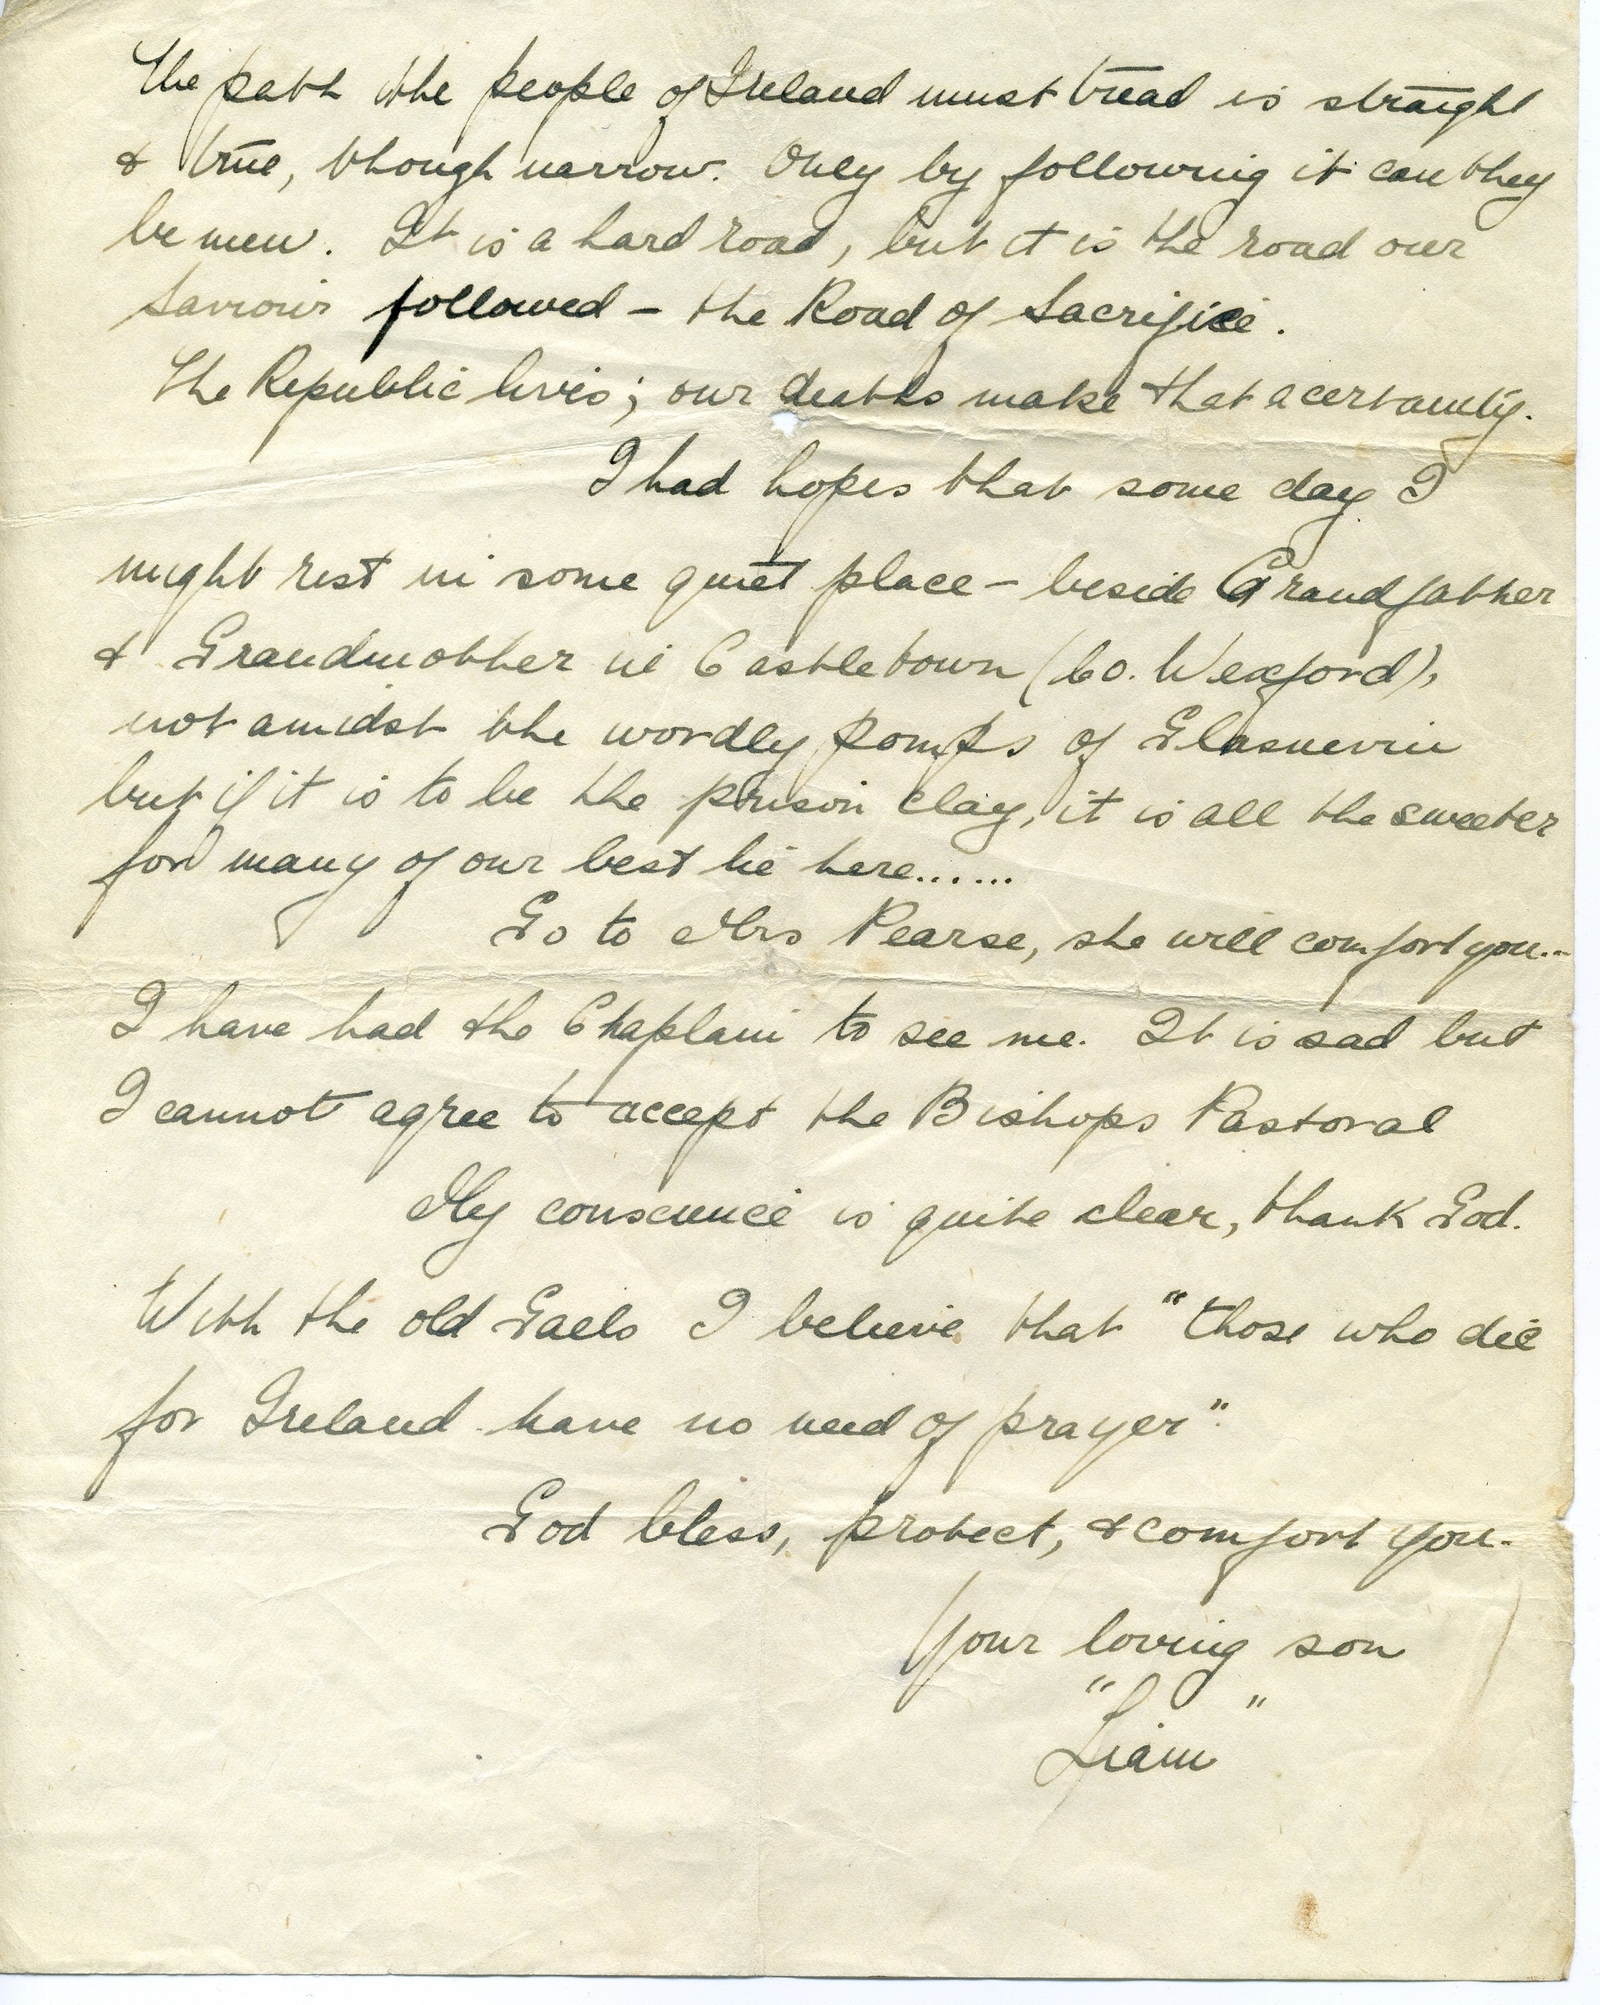 The path the people of Ireland must tread is straight
& true, though narrow. Only by following it can they
be men. It is a hard road, but it is the road our
Saviour followed – the Road of Sacrifice.
The Republic lives; our deaths make that a certainty.
I had hopes that some day I
might rest in some quiet place – beside Grandfather
& Grandmother in Castletown (Co. Wexford),
not amidst the wordly pomps of Glasnevin
but if it is to be the prison clay, it is all the sweeter
for many of our best lie here......
Go to Mrs Pearse, she will comfort you...
I have had the Chaplain to see me. It is sad but
I cannot agree to accept the Bishops Pastoral
My conscience is quite clear, thank God.
With the old Gaels I believe that "those who die
for Ireland have no need of prayer".
God bless, protect, & comfort you.
Your loving son
"Liam"